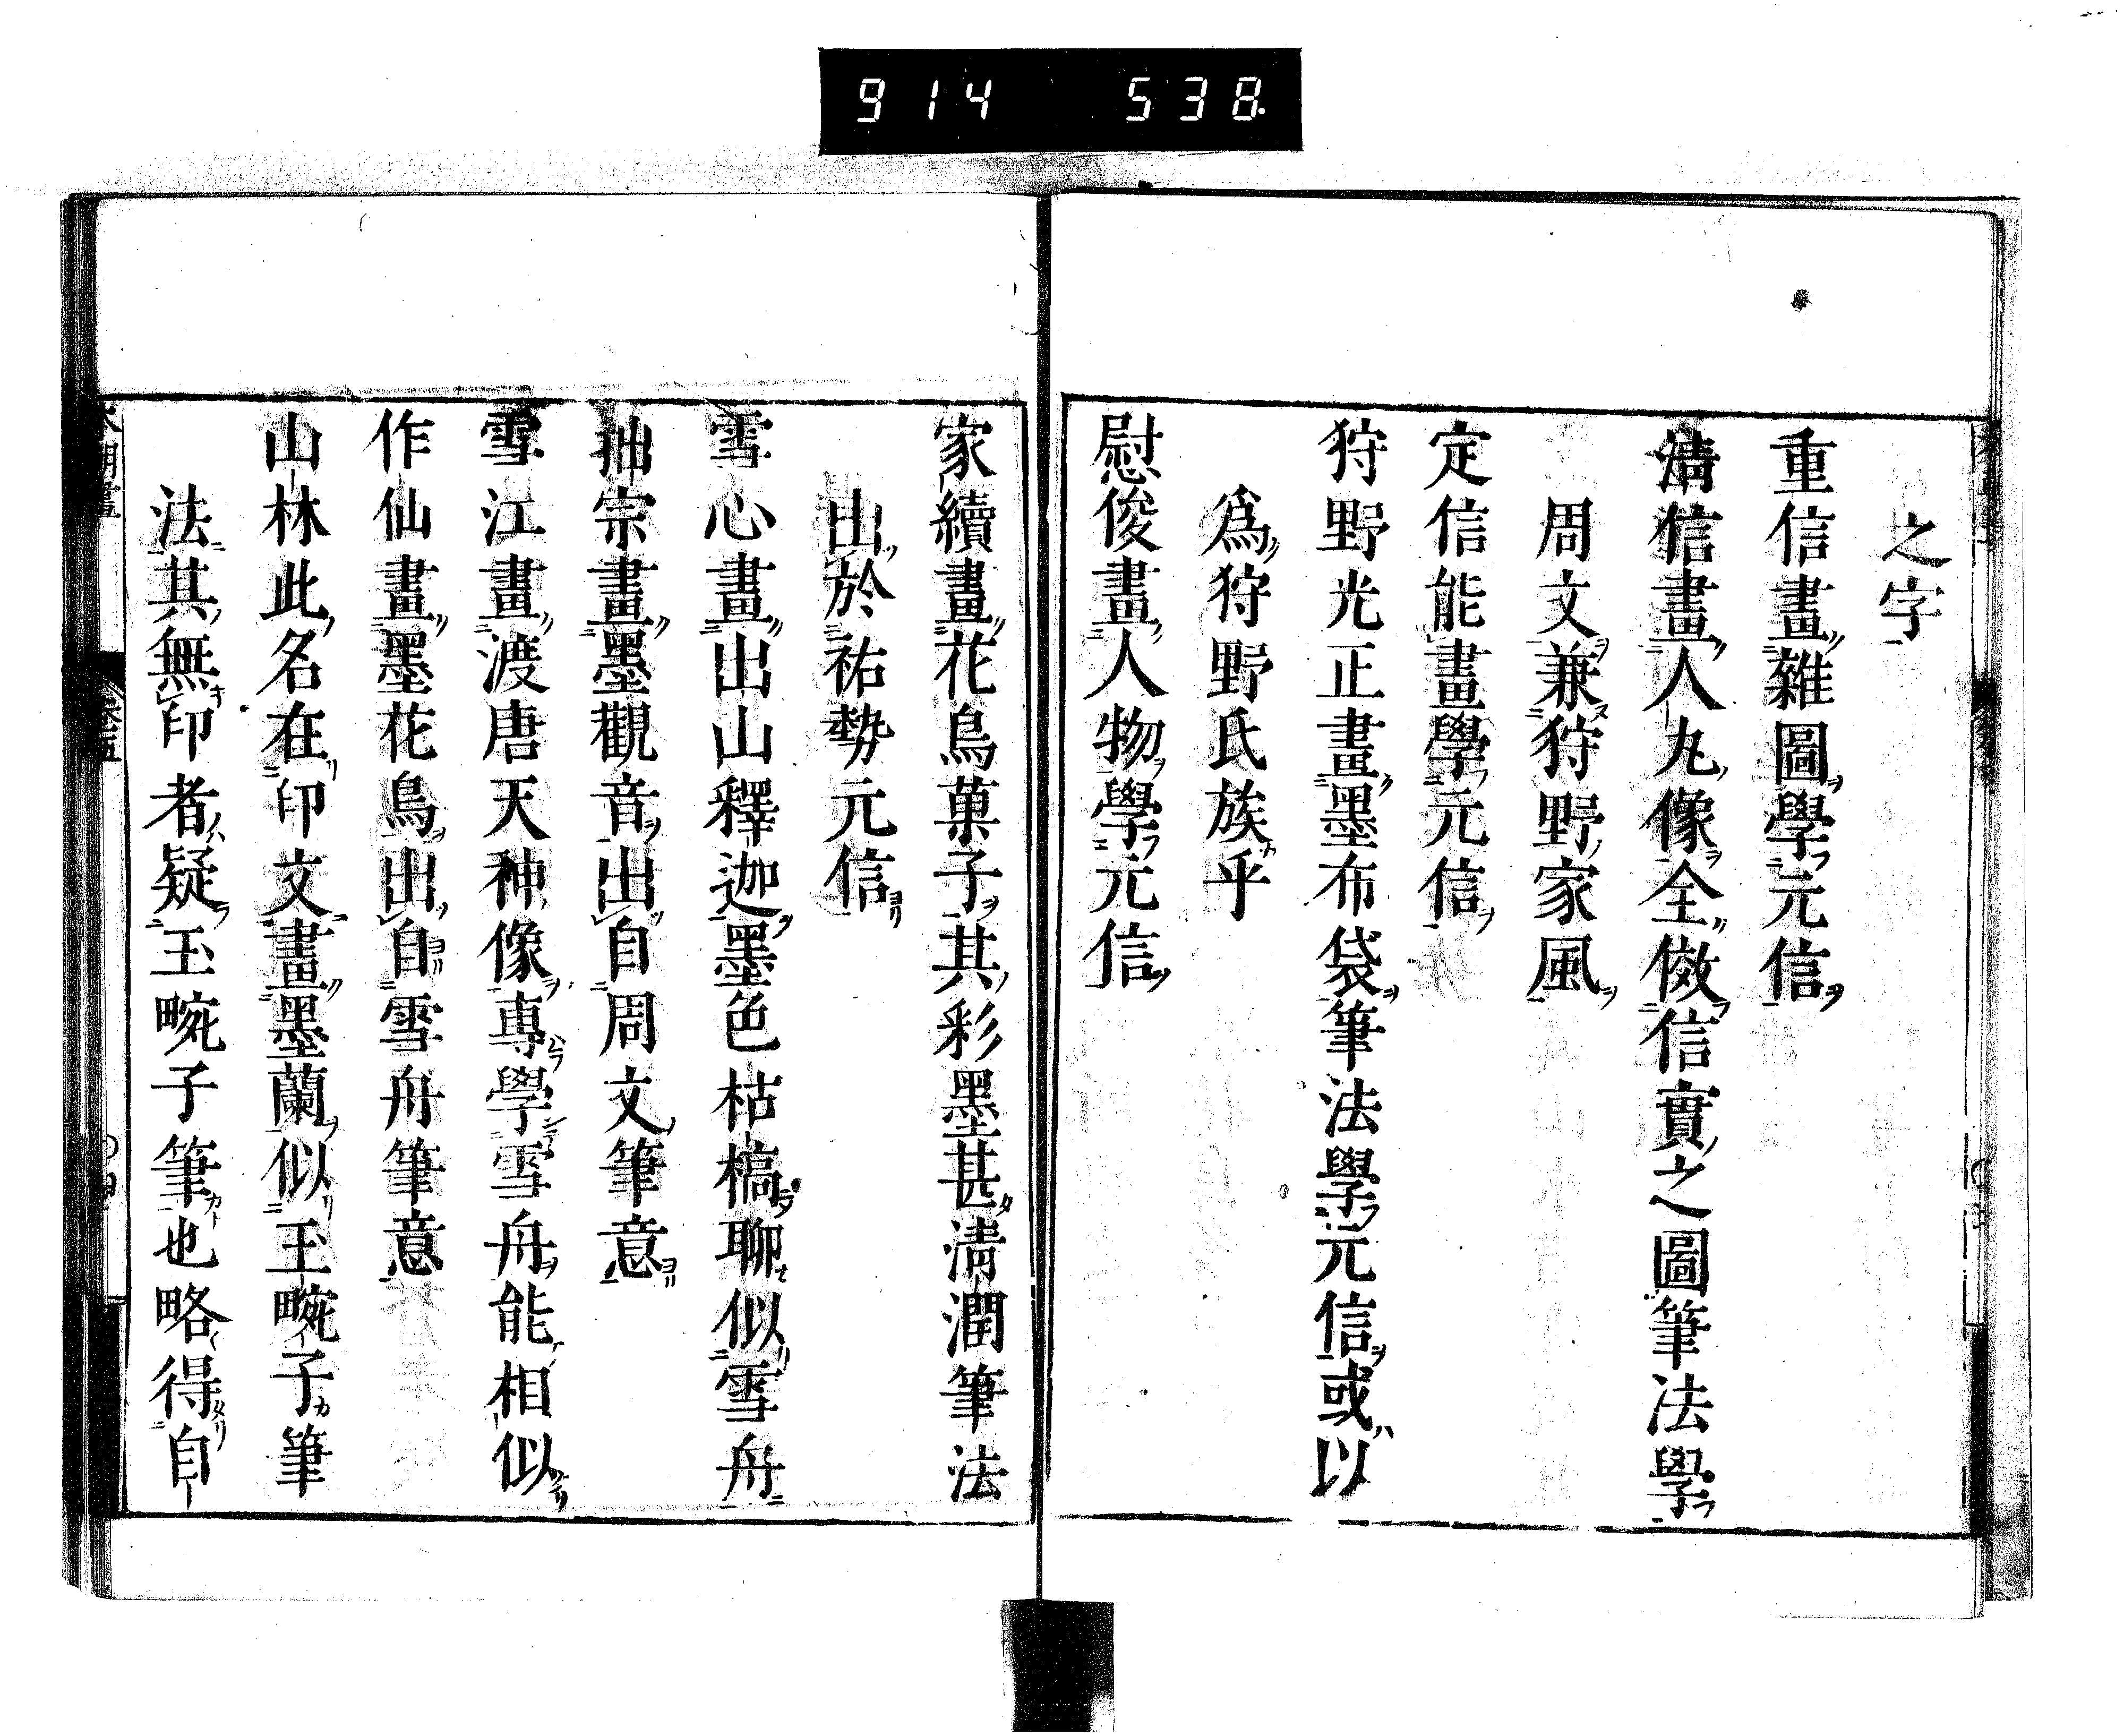 914 538
之字
重信畫雜圖學元信
淸信畫人丸像全倣信實之圖筆法學
周文兼狩野家風
定信能畫學元信
狩野光正畫墨布袋筆法學元信或以
爲狩野氏族乎
慰俊畫人物學元信
家續畫花鳥菓子其彩墨甚淸潤筆法
出於祐勢元信
雪心畫出山釋迦墨色枯槁聊似雪舟
拙宗畫墨觀音出自周文筆意
雪江畫渡唐天神像專學雪舟能相似
作仙畫墨花鳥出自雪舟筆意
山林此名在印文畫墨蘭似玉畹子筆
法其無印者疑玉畹子筆也略得自